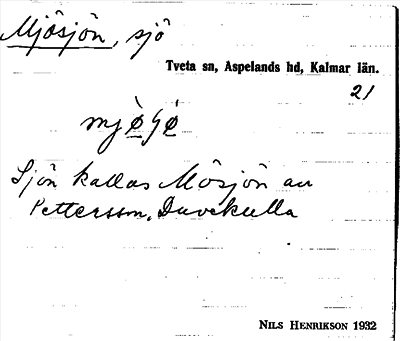 Mjösjön, sjö
Tveta sn, Aspelands hd, Kalmar län.
21
Sjön kallas Mösjön av
Pettersson, Duvekulla
NILS HENRIKSON 1932